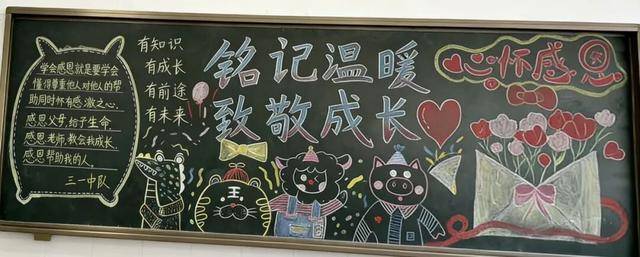 学会感恩就是要学会
懂得尊重他人对他人的帮
助同时怀有感激之心
感恩父母,给予生命
感恩老师,教会我成长
感恩帮助我的人
三一中队
有知识
有成长
有前途
有未来
铭记温暖
致敬成长
心怀感恩